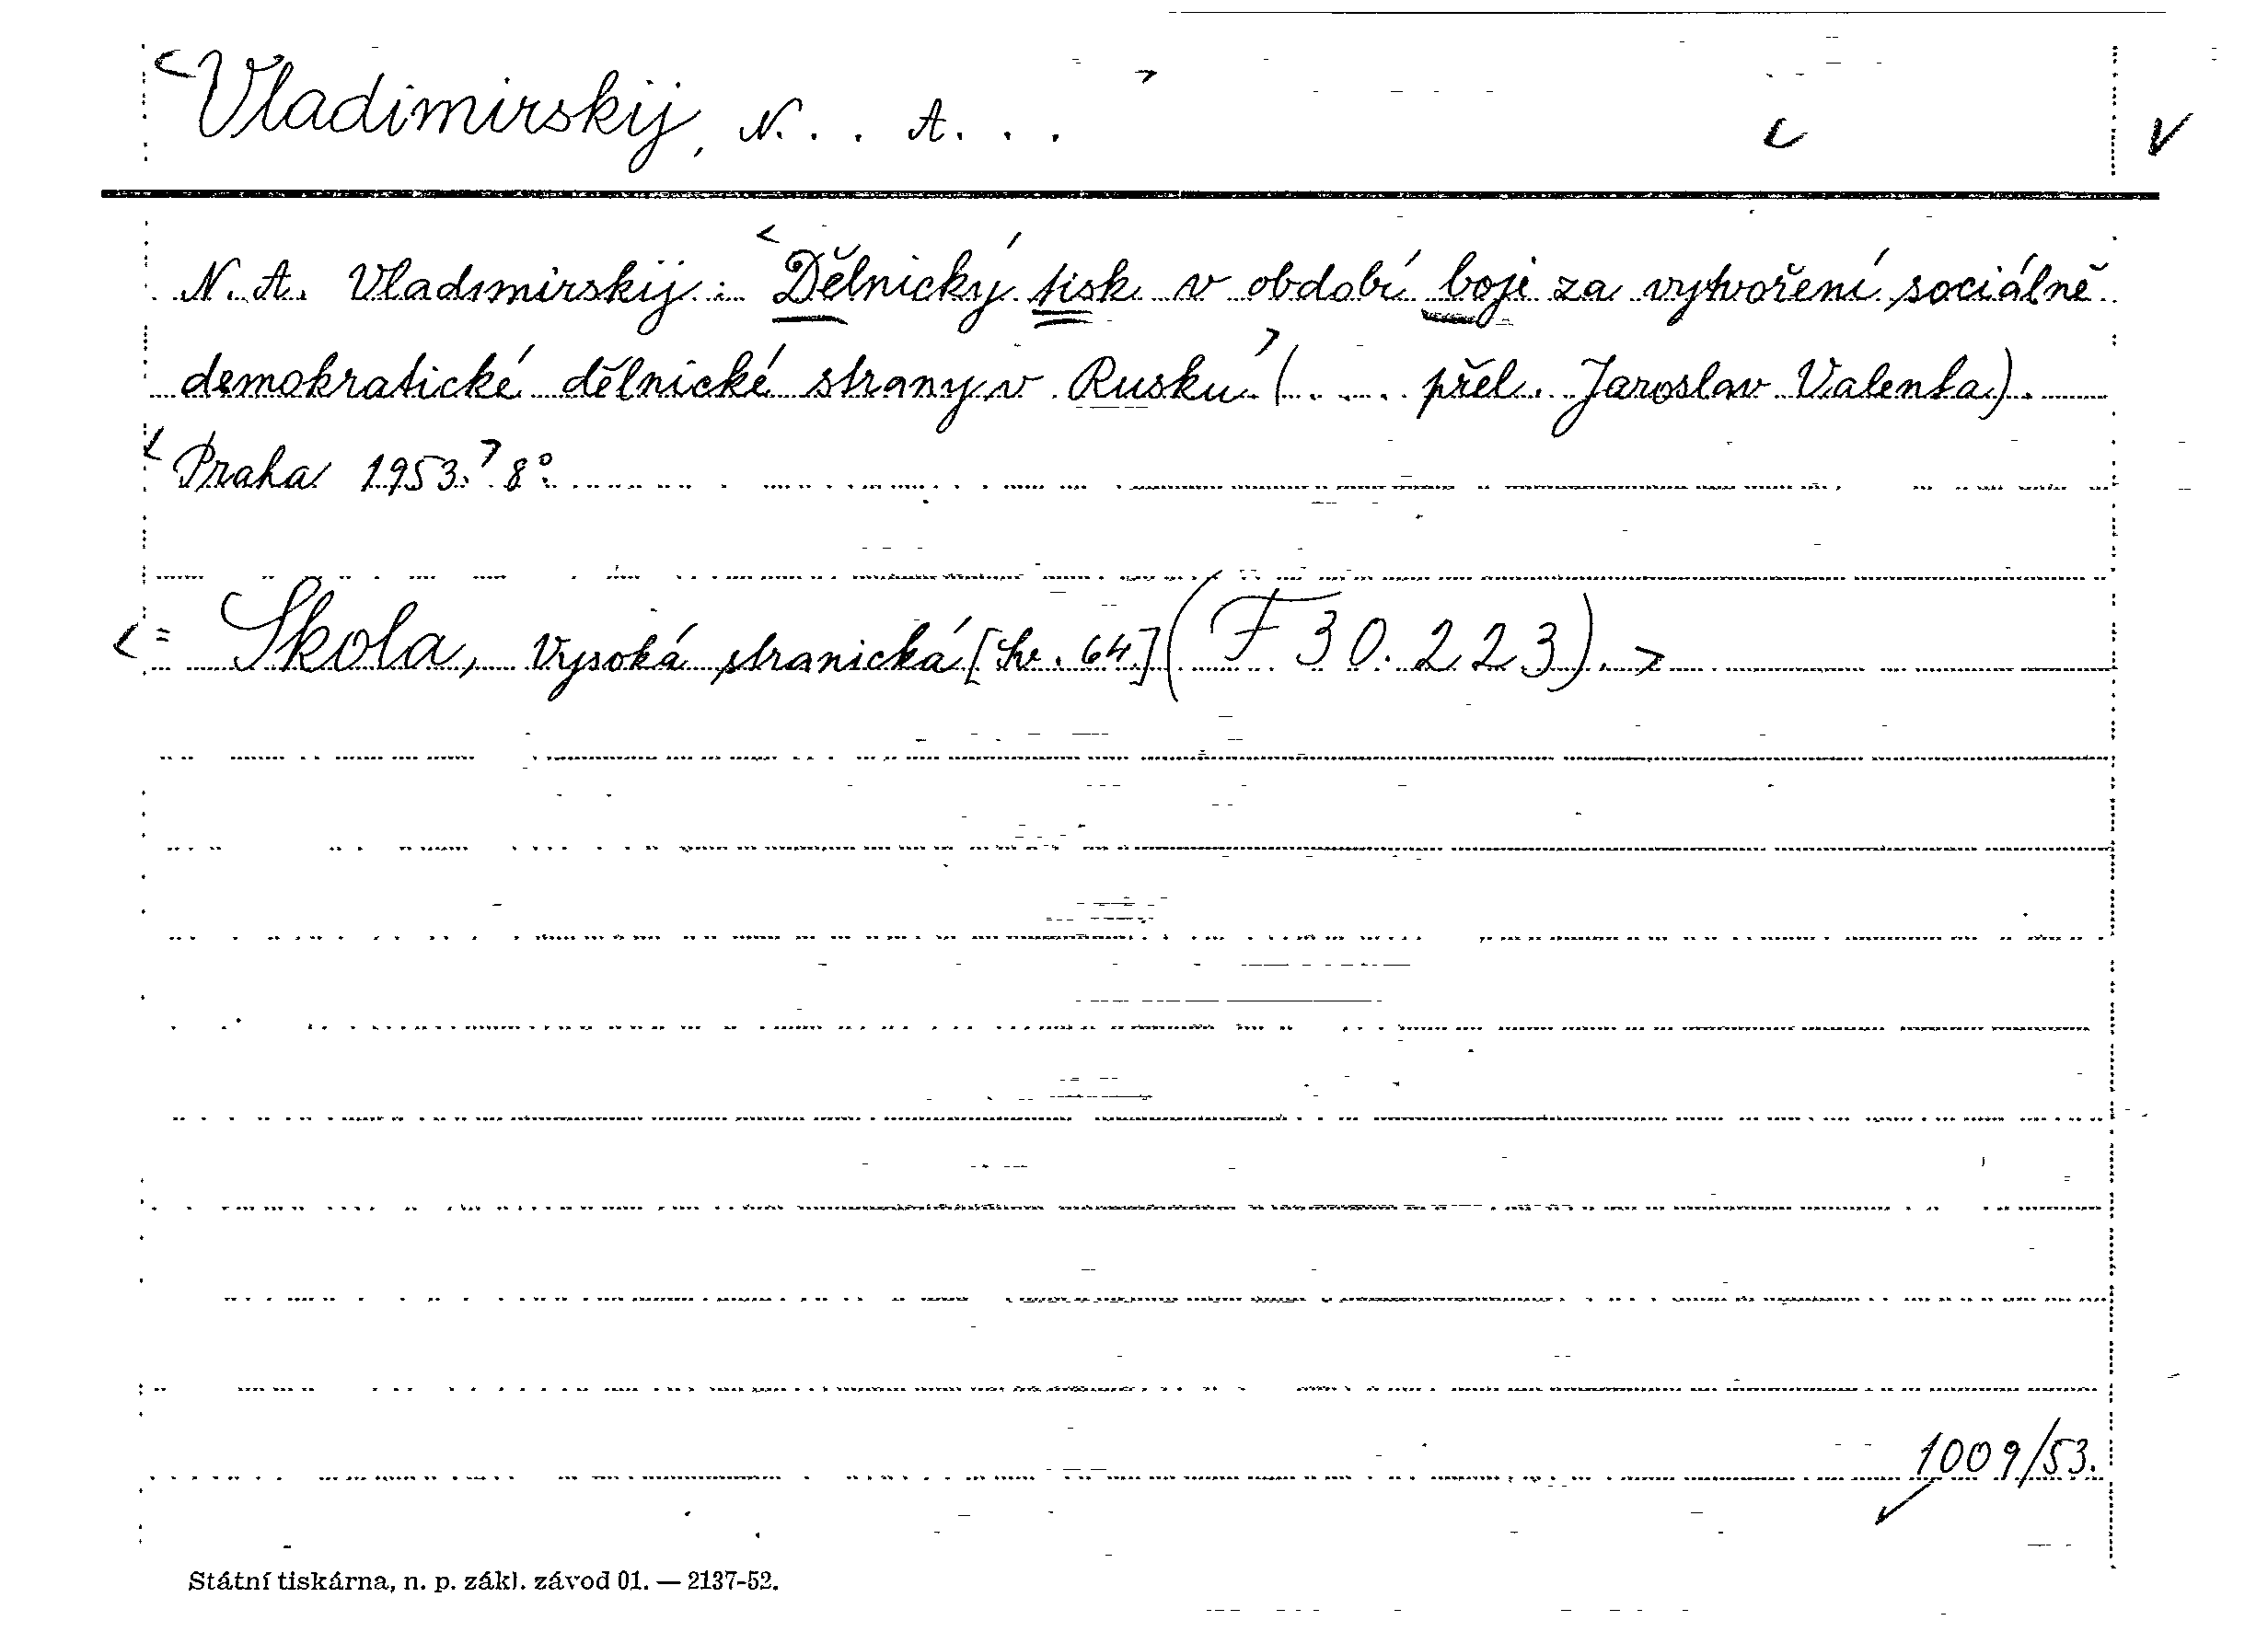 Vladimirskij, N. . . A. . . .
N. A. Vladimirskij: Dělnický tisk v období boje za vytvoření sociálně
demokratické dělnické strany v Rusku. (. . . přel. Jaroslav Valenta).
Praha 1953. 8°.
= Škola, Vysoká stranická [Sv. 64] (F 30.223).
1009/53.
Státní tiskárna, n. p. zákl. závod 01. — 2137-52.